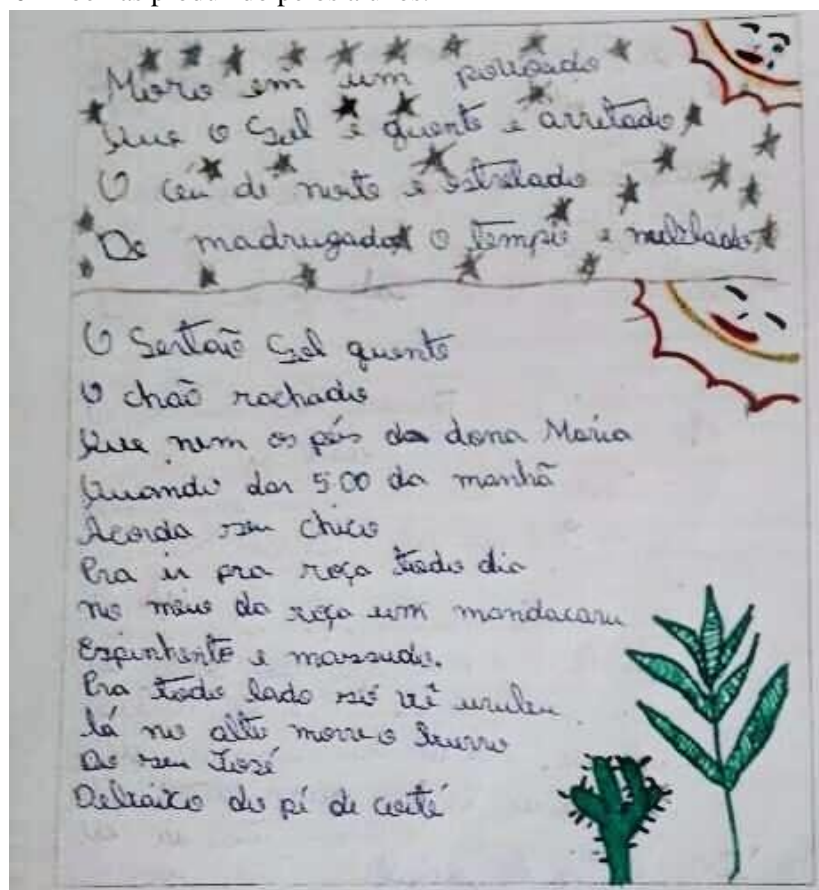 Moro em um povoado
Que o Sol é quente e arretado
O céu de noite é estrelado
De madrugada o tempo é nublado
O Sertão Sol quente
O chão rachado
Que nem os pés da dona Maria
Quando dar 5:00 da manhã
Acorda seu Chico
Pra ir pra roça todo dia
no meio da roça um mandacaru
Espinhento e massudo.
Pra todo lado só vê urubu
lá no alto morre o burro
Do seu José
Debaixo do pé de coité